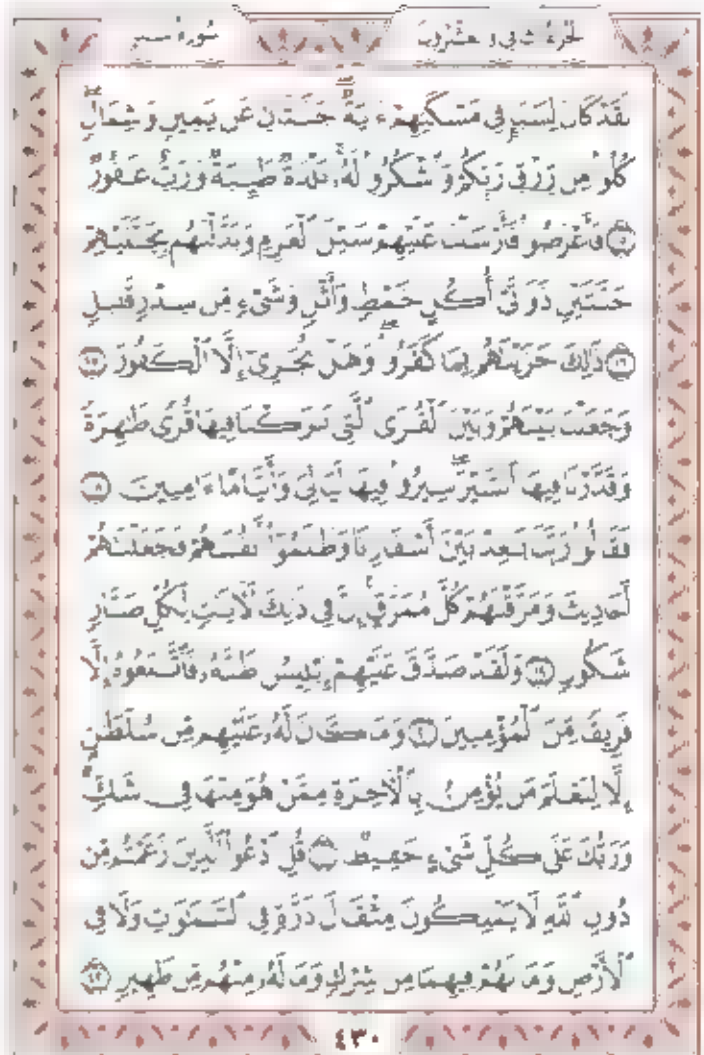 الجزء الثاني والعشرون
سورة سبإ
لَقَدْ كَانَ لِسَبَإٍ فِي مَسْكَنِهِمْ ءَايَةٌ ۖ جَنَّتَانِ عَن يَمِينٍ وَشِمَالٍ ۖ
كُلُوا۟ مِن رِّزْقِ رَبِّكُمْ وَٱشْكُرُوا۟ لَهُۥ ۚ بَلْدَةٌ طَيِّبَةٌ وَرَبٌّ غَفُورٌ
﴿١٥﴾ فَأَعْرَضُوا۟ فَأَرْسَلْنَا عَلَيْهِمْ سَيْلَ ٱلْعَرِمِ وَبَدَّلْنَٰهُم بِجَنَّتَيْهِمْ
جَنَّتَيْنِ ذَوَاتَىْ أُكُلٍ خَمْطٍ وَأَثْلٍ وَشَىْءٍ مِّن سِدْرٍ قَلِيلٍ
﴿١٦﴾ ذَٰلِكَ جَزَيْنَٰهُم بِمَا كَفَرُوا۟ ۖ وَهَلْ نُجَٰزِىٓ إِلَّا ٱلْكَفُورَ ﴿١٧﴾
وَجَعَلْنَا بَيْنَهُمْ وَبَيْنَ ٱلْقُرَى ٱلَّتِى بَٰرَكْنَا فِيهَا قُرًى ظَٰهِرَةً
وَقَدَّرْنَا فِيهَا ٱلسَّيْرَ ۖ سِيرُوا۟ فِيهَا لَيَالِىَ وَأَيَّامًا ءَامِنِينَ ﴿١٨﴾
فَقَالُوا۟ رَبَّنَا بَٰعِدْ بَيْنَ أَسْفَارِنَا وَظَلَمُوٓا۟ أَنفُسَهُمْ فَجَعَلْنَٰهُمْ
أَحَادِيثَ وَمَزَّقْنَٰهُمْ كُلَّ مُمَزَّقٍ ۚ إِنَّ فِى ذَٰلِكَ لَءَايَٰتٍ لِّكُلِّ صَبَّارٍ
شَكُورٍ ﴿١٩﴾ وَلَقَدْ صَدَّقَ عَلَيْهِمْ إِبْلِيسُ ظَنَّهُۥ فَٱتَّبَعُوهُ إِلَّا
فَرِيقًا مِّنَ ٱلْمُؤْمِنِينَ ﴿٢٠﴾ وَمَا كَانَ لَهُۥ عَلَيْهِم مِّن سُلْطَٰنٍ
إِلَّا لِنَعْلَمَ مَن يُؤْمِنُ بِٱلْءَاخِرَةِ مِمَّنْ هُوَ مِنْهَا فِى شَكٍّ ۗ
وَرَبُّكَ عَلَىٰ كُلِّ شَىْءٍ حَفِيظٌ ﴿٢١﴾ قُلِ ٱدْعُوا۟ ٱلَّذِينَ زَعَمْتُم مِّن
دُونِ ٱللَّهِ ۖ لَا يَمْلِكُونَ مِثْقَالَ ذَرَّةٍ فِى ٱلسَّمَٰوَٰتِ وَلَا فِى
ٱلْأَرْضِ وَمَا لَهُمْ فِيهِمَا مِن شِرْكٍ وَمَا لَهُۥ مِنْهُم مِّن ظَهِيرٍ ﴿٢٢﴾
٤٣٠